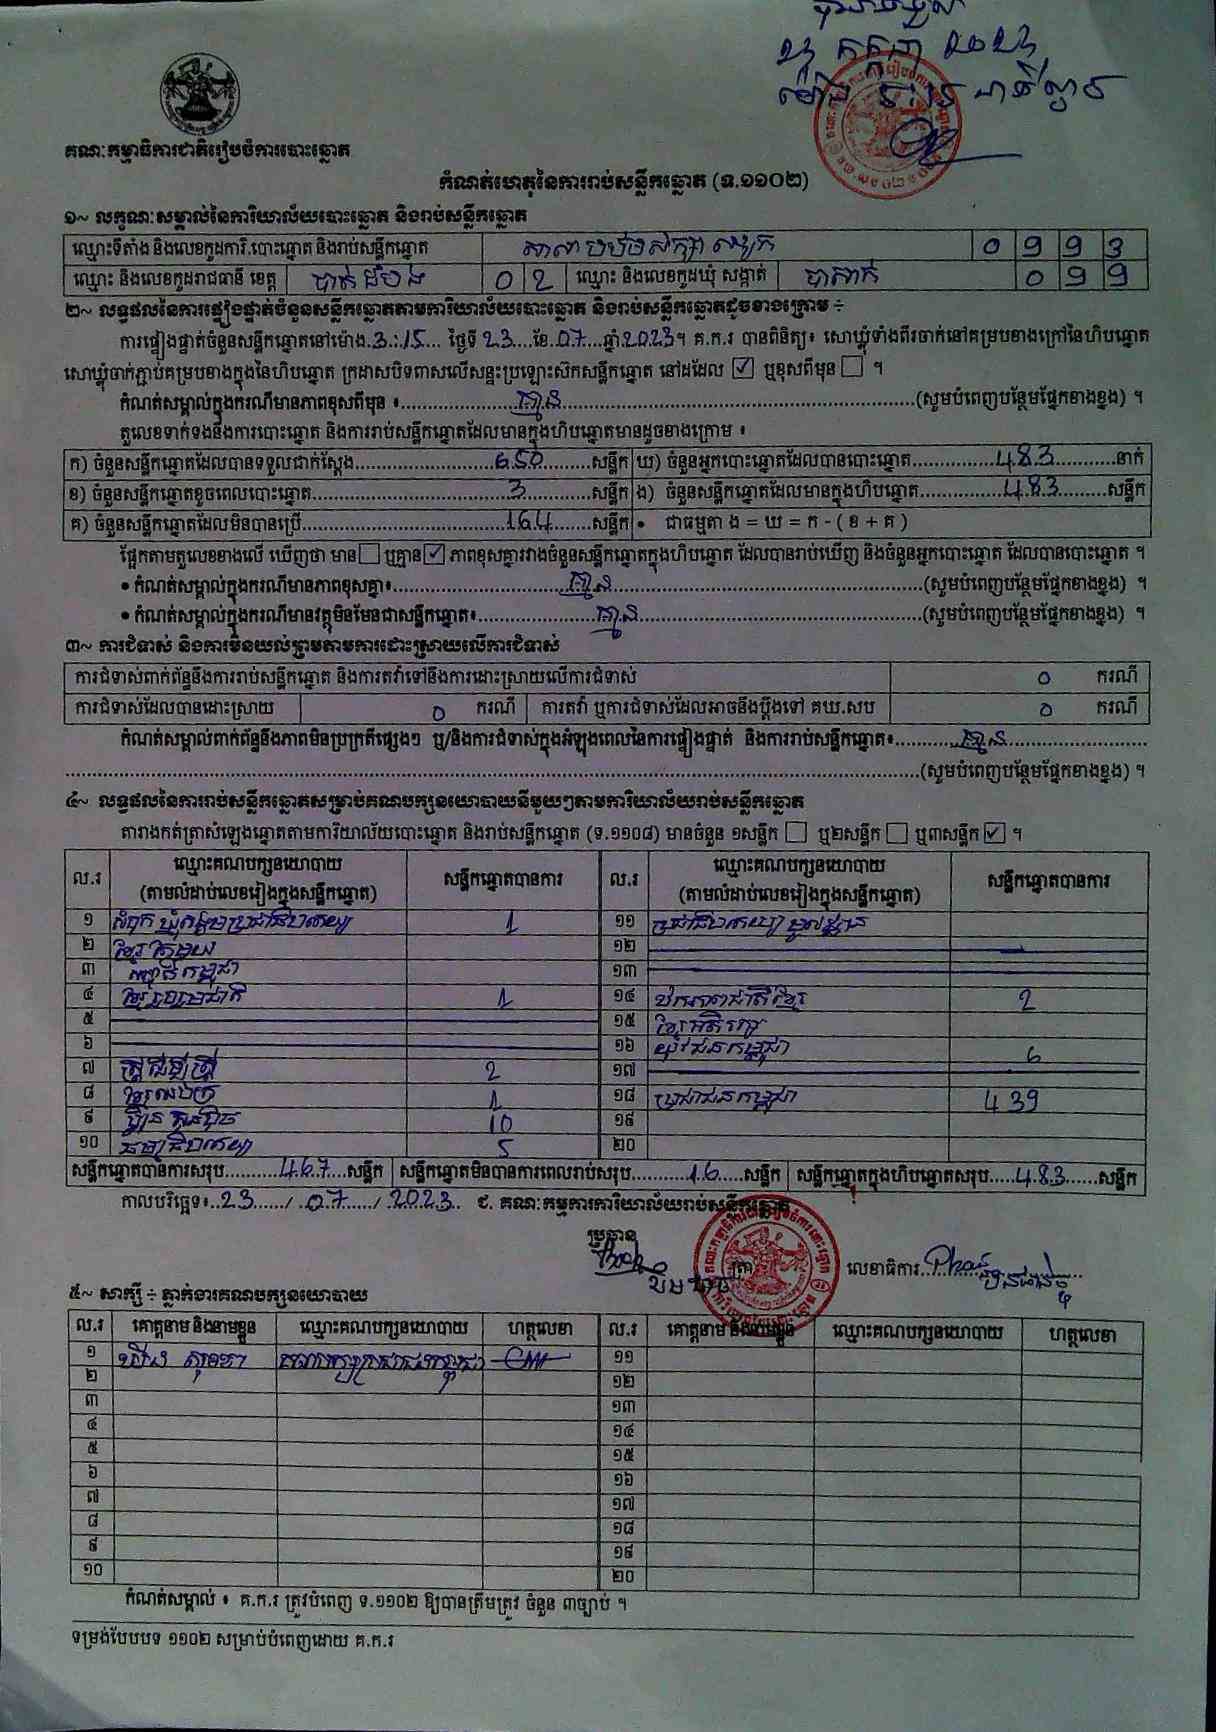 ២៣ កក្កដា ២០២៣
គណៈកម្មាធិការជាតិរៀបចំការបោះឆ្នោត
កំណត់ហេតុនៃការរាប់សន្លឹកឆ្នោត (ទ.១១០២)
១~ លក្ខណៈសម្គាល់នៃការិយាល័យបោះឆ្នោត និងរាប់សន្លឹកឆ្នោត
ឈ្មោះទីតាំង និងលេខកូដការិ.បោះឆ្នោត និងរាប់សន្លឹកឆ្នោត សាលាបឋមសិក្សា 0 9 9 3
ឈ្មោះ និងលេខកូដរាជធានី ខេត្ត បាត់ដំបង 0 2 ឈ្មោះ និងលេខកូដឃុំ សង្កាត់ បាសាក់ 0 9 9
២~ លទ្ធផលនៃការផ្ទៀងផ្ទាត់ចំនួនសន្លឹកឆ្នោតតាមការិយាល័យបោះឆ្នោត និងរាប់សន្លឹកឆ្នោតដូចខាងក្រោម ÷
ការផ្ទៀងផ្ទាត់ចំនួនសន្លឹកឆ្នោតនៅម៉ោង 3:15 ថ្ងៃទី 23 ខែ 07 ឆ្នាំ 2023។ គ.ក.រ បានពិនិត្យ៖ សោឃ្លុំទាំងពីរចាក់នៅគម្របខាងក្រៅនៃហិបឆ្នោត
សោឃ្លុំចាក់ភ្ជាប់គម្របខាងក្នុងនៃហិបឆ្នោត ក្រដាសបិទពាសលើសន្ទះប្រឡោះស៊កសន្លឹកឆ្នោត នៅដដែល ☑ ឬខុសពីមុន ☐ ។
កំណត់សម្គាល់ក្នុងករណីមានភាពខុសពីមុន ៖ គ្មាន (សូមបំពេញបន្ថែមផ្នែកខាងខ្នង) ។
តួលេខទាក់ទងនឹងការបោះឆ្នោត និងការរាប់សន្លឹកឆ្នោតដែលមានក្នុងហិបឆ្នោតមានដូចខាងក្រោម ៖
ក) ចំនួនសន្លឹកឆ្នោតដែលបានទទួលជាក់ស្តែង 650 សន្លឹក ឃ) ចំនួនអ្នកបោះឆ្នោតដែលបានបោះឆ្នោត 483 នាក់
ខ) ចំនួនសន្លឹកឆ្នោតខូចពេលបោះឆ្នោត 3 សន្លឹក ង) ចំនួនសន្លឹកឆ្នោតដែលមានក្នុងហិបឆ្នោត 483 សន្លឹក
គ) ចំនួនសន្លឹកឆ្នោតដែលមិនបានប្រើ 164 សន្លឹក • ជាធម្មតា ង = ឃ = ក - ( ខ + គ )
ផ្អែកតាមតួលេខខាងលើ ឃើញថា មាន ☐ ឬគ្មាន ☑ ភាពខុសគ្នារវាងចំនួនសន្លឹកឆ្នោតក្នុងហិបឆ្នោត ដែលបានរាប់ឃើញ និងចំនួនអ្នកបោះឆ្នោត ដែលបានបោះឆ្នោត ។
• កំណត់សម្គាល់ក្នុងករណីមានភាពខុសគ្នា៖ គ្មាន (សូមបំពេញបន្ថែមផ្នែកខាងខ្នង) ។
• កំណត់សម្គាល់ក្នុងករណីមានវត្ថុមិនមែនជាសន្លឹកឆ្នោត៖ គ្មាន (សូមបំពេញបន្ថែមផ្នែកខាងខ្នង) ។
៣~ ការជំទាស់ និងការមិនយល់ព្រមតាមការដោះស្រាយលើការជំទាស់
ការជំទាស់ពាក់ព័ន្ធនឹងការរាប់សន្លឹកឆ្នោត និងការតវ៉ាទៅនឹងការដោះស្រាយលើការជំទាស់ 0 ករណី
ការជំទាស់ដែលបានដោះស្រាយ 0 ករណី ការតវ៉ា ឬការជំទាស់ដែលអាចនឹងប្តឹងទៅ គឃ.សប 0 ករណី
កំណត់សម្គាល់ពាក់ព័ន្ធនឹងភាពមិនប្រក្រតីផ្សេងៗ ឬ/និងការជំទាស់ក្នុងអំឡុងពេលនៃការផ្ទៀងផ្ទាត់ និងការរាប់សន្លឹកឆ្នោត៖ គ្មាន
(សូមបំពេញបន្ថែមផ្នែកខាងខ្នង) ។
៤~ លទ្ធផលនៃការរាប់សន្លឹកឆ្នោតសម្រាប់គណបក្សនយោបាយនីមួយៗតាមការិយាល័យរាប់សន្លឹកឆ្នោត
តារាងកត់ត្រាសំឡេងឆ្នោតតាមការិយាល័យបោះឆ្នោត និងរាប់សន្លឹកឆ្នោត (ទ.១១០៨) មានចំនួន ១សន្លឹក ☐ ឬ២សន្លឹក ☐ ឬ៣សន្លឹក ☑ ។
ល.រ ឈ្មោះគណបក្សនយោបាយ (តាមលំដាប់លេខរៀងក្នុងសន្លឹកឆ្នោត) សន្លឹកឆ្នោតបានការ ល.រ ឈ្មោះគណបក្សនយោបាយ (តាមលំដាប់លេខរៀងក្នុងសន្លឹកឆ្នោត) សន្លឹកឆ្នោតបានការ
១ សំបុកឃ្មុំសង្គមប្រជាធិបតេយ្យ 1 ១១ ប្រជាធិបតេយ្យមូលដ្ឋាន
២ ខ្មែរតែមួយ ១២
៣ កម្ពុជា ១៣
៤ ខ្មែររួបរួមជាតិ 1 ១៤ ឯកភាពជាតិខ្មែរ 2
៥ ១៥ ខ្មែរអភិរក្ស
៦ ១៦ យុវជនកម្ពុជា 6
៧ 2 ១៧
៨ ខ្មែរឈប់ក្រ 1 ១៨ ប្រជាជនកម្ពុជា 439
៩ ហ៊្វុនស៊ិនប៉ិច 10 ១៩
១០ ធម្មាធិបតេយ្យ 5 ២០
សន្លឹកឆ្នោតបានការសរុប 467 សន្លឹក សន្លឹកឆ្នោតមិនបានការពេលរាប់សរុប 16 សន្លឹក សន្លឹកឆ្នោតក្នុងហិបឆ្នោតសរុប 483 សន្លឹក
កាលបរិច្ឆេទ៖ 23 / 07 / 2023 ជ. គណៈកម្មការការិយាល័យរាប់សន្លឹកឆ្នោត
ប្រធាន
លេខាធិការ
៥~ សាក្សី ÷ ភ្នាក់ងារគណបក្សនយោបាយ
ល.រ គោត្តនាម និងនាមខ្លួន ឈ្មោះគណបក្សនយោបាយ ហត្ថលេខា ល.រ គោត្តនាម និងនាមខ្លួន ឈ្មោះគណបក្សនយោបាយ ហត្ថលេខា
១ គណបក្សប្រជាជនកម្ពុជា ១១
២ ១២
៣ ១៣
៤ ១៤
៥ ១៥
៦ ១៦
៧ ១៧
៨ ១៨
៩ ១៩
១០ ២០
កំណត់សម្គាល់ ៖ គ.ក.រ ត្រូវបំពេញ ទ.១១០២ ឱ្យបានត្រឹមត្រូវ ចំនួន ៣ច្បាប់ ។
ទម្រង់បែបបទ ១១០២ សម្រាប់បំពេញដោយ គ.ក.រ